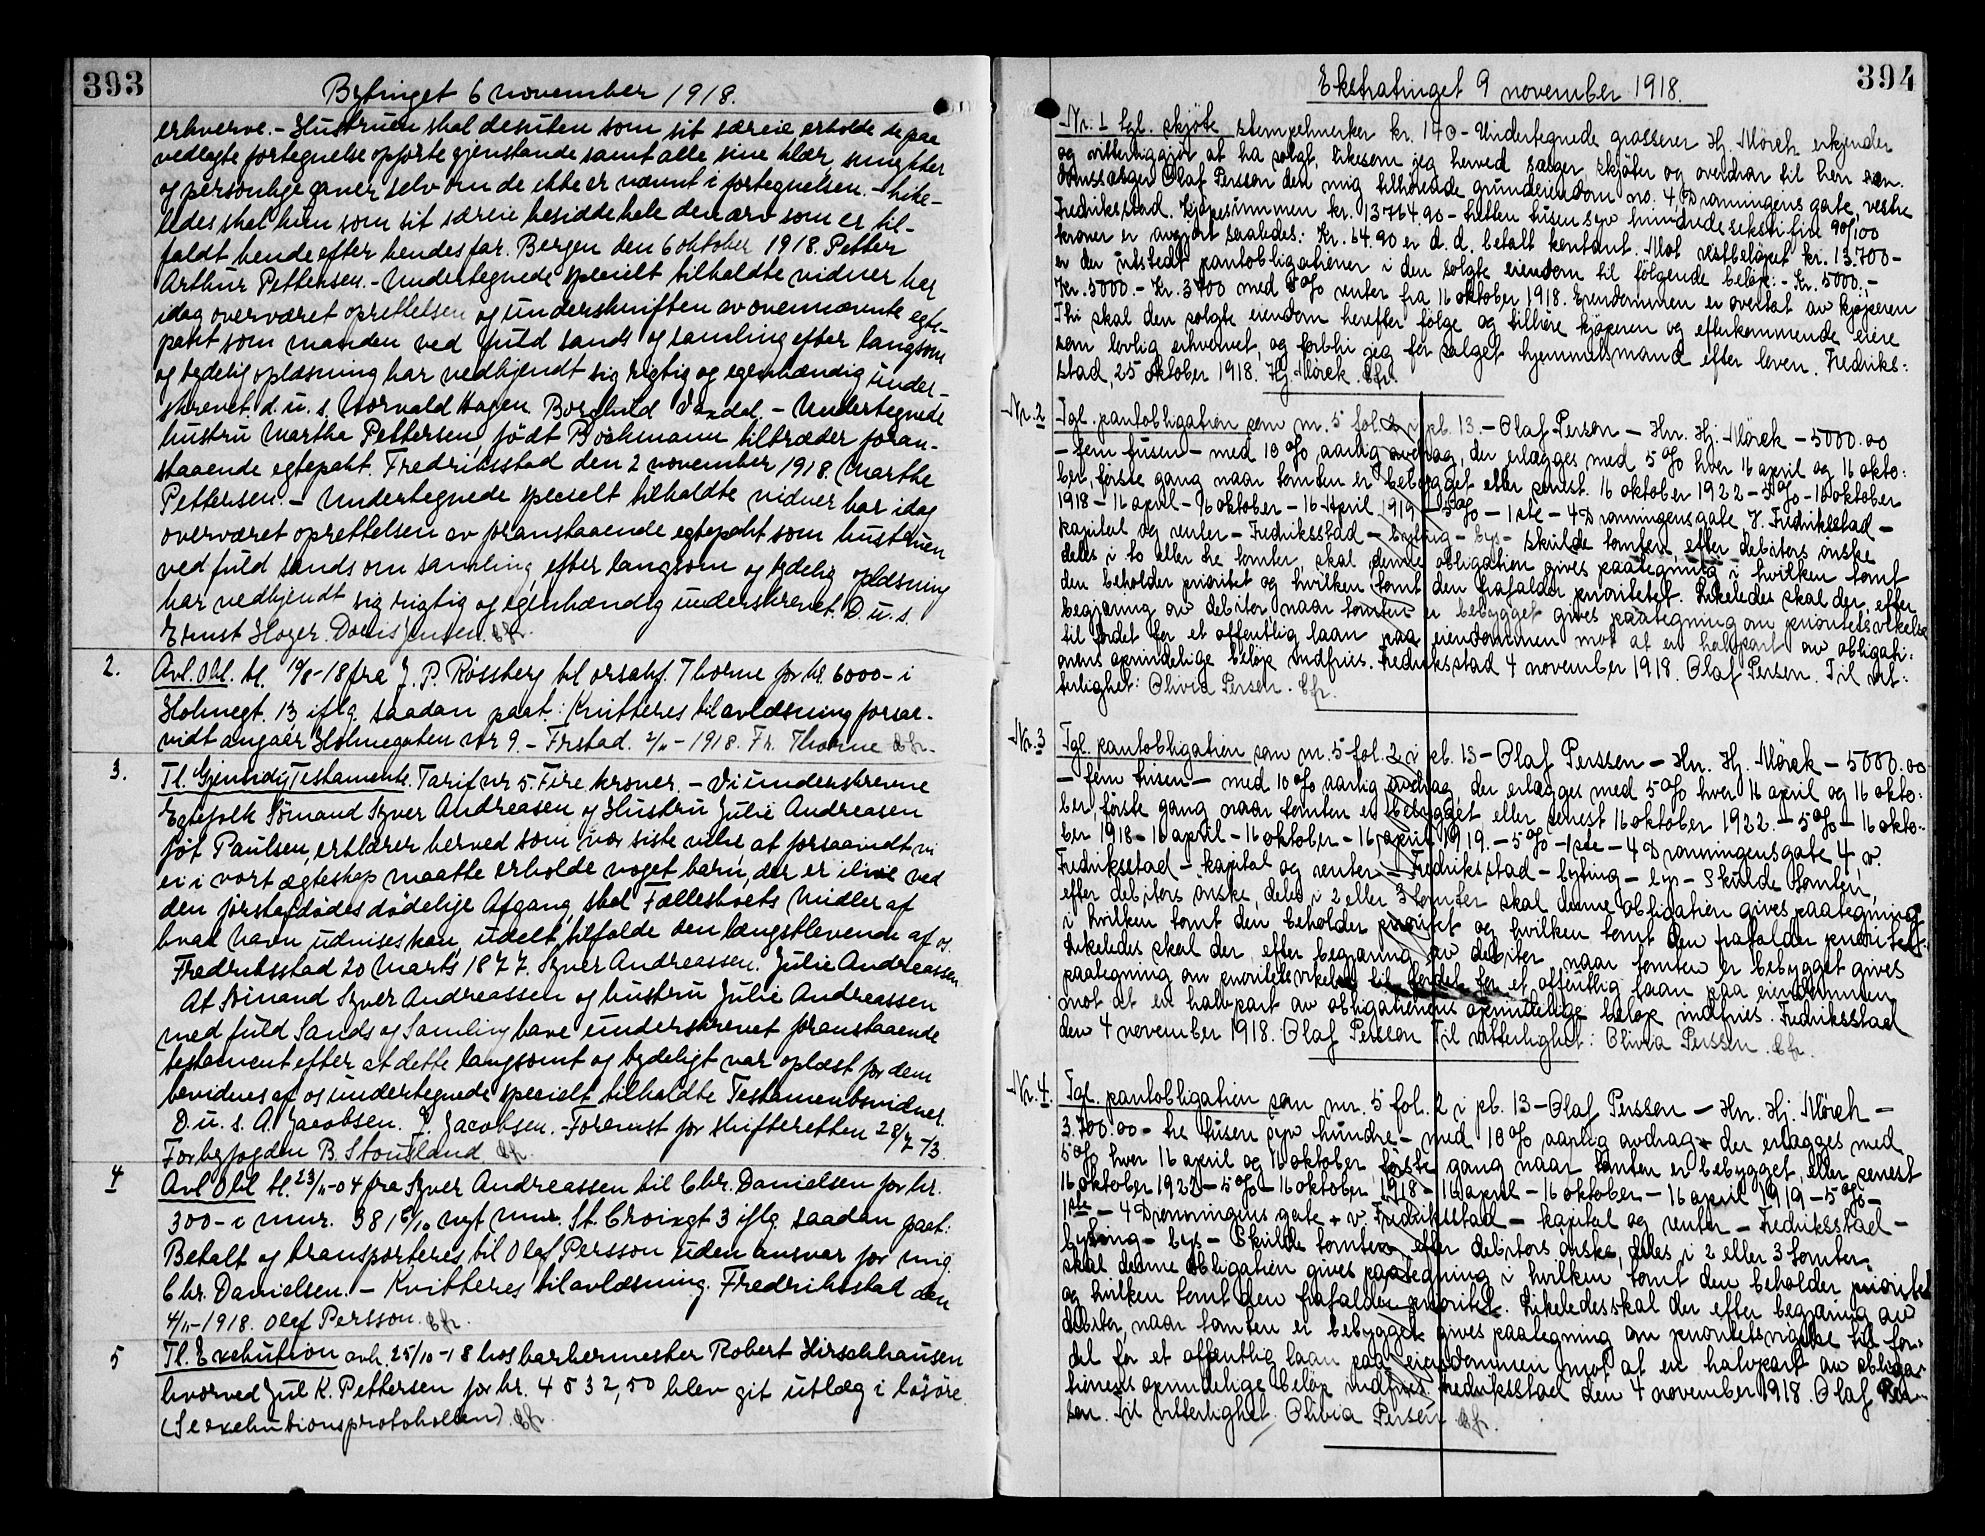 393
Bytinget 6 november 1918.
erhverve. – Hustruen skal desuten som sit særeie erholde de paa
vedlagte fortegnelse opførte gjenstande samt alle sine klær, smykker
og personlige gaver selv om de ikke er nævnt i fortegnelsen. – Like-
ledes skal hun som sit særeie besidde hele den arv som er til-
faldt hende efter hendes far. Bergen den 6 oktober 1918. Petter
Arthur Pettersen. – Undertegnede specielt tilkaldte vidner har
idag overværet oprettelsen og underskriften av ovennævnte egte-
pakt som manden ved fuld sands og samling efter langsom
og tydelig oplæsning har vedkjendt sig rigtig og egenhændig under-
skrevet. d. u. s. Thorvald Hagen Borghild Vaxdal. – Undertegnede
hustru Marthe Pettersen født Bockmann tiltræder foran-
staaende egtepakt. Fredriksstad den 2 november 1918. Marthe
Pettersen. – Undertegnede specielt tilkaldte vidner har idag
overværet oprettelsen av foranstaaende egtepakt som hustruen
ved fuld sands om samling efter langsom og tydelig oplæsning
har vedkjendt sig rigtig og egenhændig underskrevet. D. u. s.
Ernst Hoyer. Doris Jensen. Cfr.
2. Avl. Obl. tl. 19/8-18 fra J. P. Røssberg til orsakf. Thorne for kr. 6000- i
Holmegt. 13 iflg. saadan paat: Kvitteres til avlæsning forsaa-
vidt angaar Holmegaten nr 9. – Frstad. 2/11-1918. Fr. Thorne Cfr.
3. Tl. Gjensidig Testamente. Tarif nr 5. Fire kroner. – Vi underskrevne
Egtefolk Sømand Syver Andreasen og Hustru Julie Andreasen
født Paulsen, erklærer herved som vor siste vilie at forsaavidt vi
ei i vort ægteskap maatte erholde noget barn, der er ilive ved
den førstafdødes dødelige Afgang, skal Fællesboets Midler af
hvad Navn udvises kan, udelt tilfalde den længstlevende af os.
Fredriksstad 20 Marts 1877. Syver Andreassen. Julie Andreassen
At Sømand Syver Andreassen og hustru Julie Andreassen
med fuld Sands og Samling have underskrevet foranstaaende
testament efter at dette langsomt og tydeligt var oplæst for dem
bevidnes af os undertegnede specielt tilkaldte Testamentsvidner.
D. u. s. A. Jacobsen. P. Jacobsen. – Foreinst for skifteretten 28/7 73.
For byfogden B. Stousland Cfr.
4 Avl Obl tl. 23/11-04 fra Syver Andreassen til Chr. Danielsen for kr.
300- i mnr. 381 nyt mnr. St. Croixgt 3 iflg. saadan paat:
Betalt og transporteres til Olaf Persson uden ansvar for mig
Chr. Danielsen. – Kvitteres til avlæsning. Fredriksstad den
4/11-1918. Olaf Persson. Cfr.
5 Tl. Exekution avh. 25/10-18 hos barbermester Robert Hirschhausen
hvorved Jul K. Pettersen for kr. 4532,50 blev git utlæg i løsøre.
(Se exekutionsprotokollen). Cfr.
394
Ekstratinget 9 november 1918.
Nr. 1 tgl. skjøte stempelmerker kr. 140 – Undertegnede grosserer Hj. Mörch erkjender
og vitterliggjør at ha solgt, likesom jeg herved sælger, skjøter og overdrar til herr
Olaf Persson den mig tilhørende grundeiendom no. 4, Dronningens gate, vestre
Fredriksstad. Kjøpesummen kr. 13764.90 – tretten tusen syv hundrede seksti fire 90/100
kroner er avgjort saaledes: Kr. 64.90 er d. d. betalt kontant. Mot restbeløpet kr. 13.700-
er der utstedt pantobligationer i den solgte eiendom til følgende beløp: – Kr. 5000.-
Kr. 5000. – Kr. 3700 med 5% renter fra 16 oktober 1918. Eiendommen er overtat av kjøperen
Thi skal den solgte eiendom herefter følge og tilhøre kjøperen og efterkommende eiere
som lovlig erhvervet, og forbli jeg for salget hjemmelsmand efter loven. Fredriks:
stad, 25 oktober 1918. Hj. Mörck. Cfr.
Nr. 2 Tgl. pantobligation som nr. 5 fol. 2 i pb. 13. – Olaf Person – Hrr. Hj. Mörck – 5000.00
– fem tusen – med 10% aarlig avdrag, der erlægges med 5% hver 16 april og 16 okto:
ber, første gang naar tomten er bebygget eller senest 16 oktober 1922 – 5% – 16 oktober
1918 – 16 april – 16 oktober – 16 April 1919 – 5% – 1ste – 4 Dronningensgate, V. Fredriksstad –
kapital og renter – Fredriksstad – byting – bys – skulde tomten efter debitors ønske
deles i to eller tre tomter, skal denne obligation gives paategning i hvilken tomt
den beholder prioritet og hvilken tomt den frafalder prioritetet. Likeledes skal der, efter
begjæring av debitor naar tomten er bebygget gives paategning om prioritetsvikelse
til fordel for et offentlig laan paa eiendommen mot at en halvpart av obligati:
onens oprindelige beløp indfries. Fredriksstad 4 november 1918. Olaf Persen. Til vit:
terlighet: Olivia Persen. Cfr.
Nr. 3 Tgl. pantobligation som nr. 5 fol. 2 i pb. 13 – Olaf Perssen – Hrr. Hj. Mörck – 5000.00
– fem tusen – med 10% aarlig avdrag, der erlægges med 5% hver 16 april og 16 okto:
ber, første gang naar tomten er bebygget eller senest 16 oktober 1922. – 5% – 16 okto:
ber 1918 – 16 april – 16 oktober – 16 april 1919. – 5% – 1ste – 4 Dronningensgate 4 v.
Fredriksstad – kapital og renter – Fredriksstad – byting – bys – Skulde tomten,
efter debitors ønske, deles i 2 eller 3 tomter skal denne obligation gives paategning
i hvilken tomt den beholder prioritet og hvilken tomt den frafalder prioritet.
Likeledes skal der, efter begjæring av debitor, naar tomten er bebygget gives
paategning om prioritetsvikelse til fordel for et offentlig laan paa eiendommen
mot at en halvpart av obligationens oprindelige beløp indfries. Fredriksstad
den 4 november 1918. Olaf Perssen Til vitterlighet: Olivia Perssen. Cfr.
Nr. 4. Tgl. pantobligation som nr. 5 fol. 2 i pb. 13 – Olaf Perssen – Hrr. Hj. Mörch –
3.700.00 – tre tusen syv hundre – med 10% aarlig avdrag, der erlægges med
5% hver 16 april og 16 oktober første gang naar tomten er bebygget, eller senest
16 oktober 1922 – 5% – 16 oktober 1918 – 16 april – 16 oktober – 16 april 1919 – 5% –
1ste – 4 Dronningens gate 4 v. Fredriksstad – kapital og renter – Fredriksstad –
byting – bys – Skulde tomten efter debitors ønske, deles i 2 eller 3 tomter
skal denne obligation gives paategning i hvilken tomt den beholder prioritet
og hvilken tomt den frafalder prioritet. Likeledes skal der efter begjæring av
debitor, naar tomten er bebygget gives paategning om prioritetsvigelse til for-
del for et offentlig laan paa eiendommen mot at en halvpart av obliga:
tionens oprindelige beløp indfries. Fredriksstad den 4 november 1918. Olaf Per-
sen. Til vitterlighet, Olivia Persen Cfr.